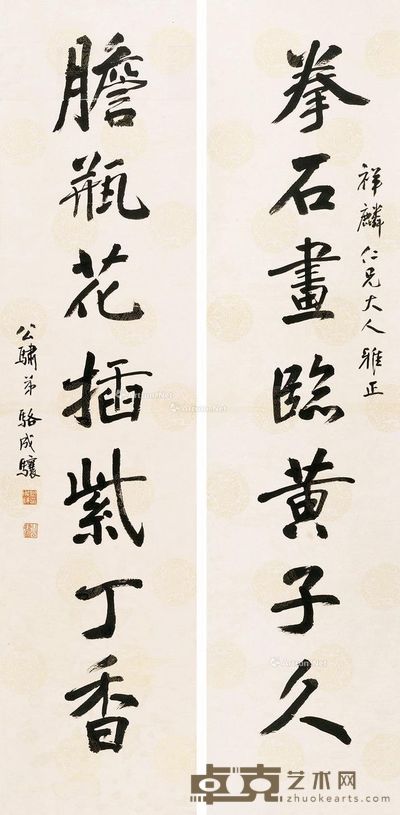 祥麟仁兄大人雅正
拳石畫臨黃子久
膽瓶花插紫丁香
公驌弟駱成驤
卓克艺术网
zhuokearts.com